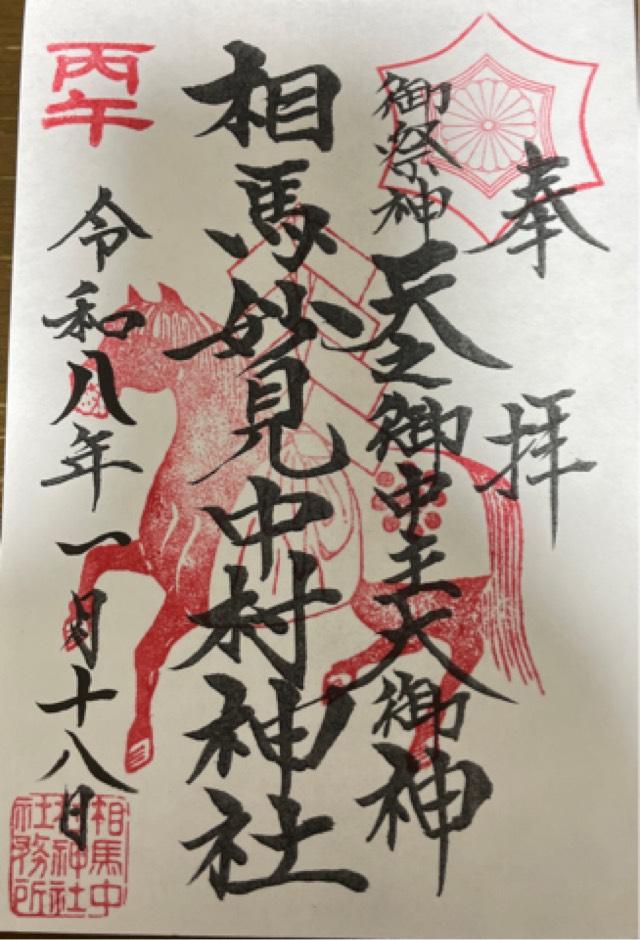 奉拝
御祭神 天之御中主大御神
相馬妙見中村神社
丙午
令和八年一月十八日
相馬中
村神社
社務所